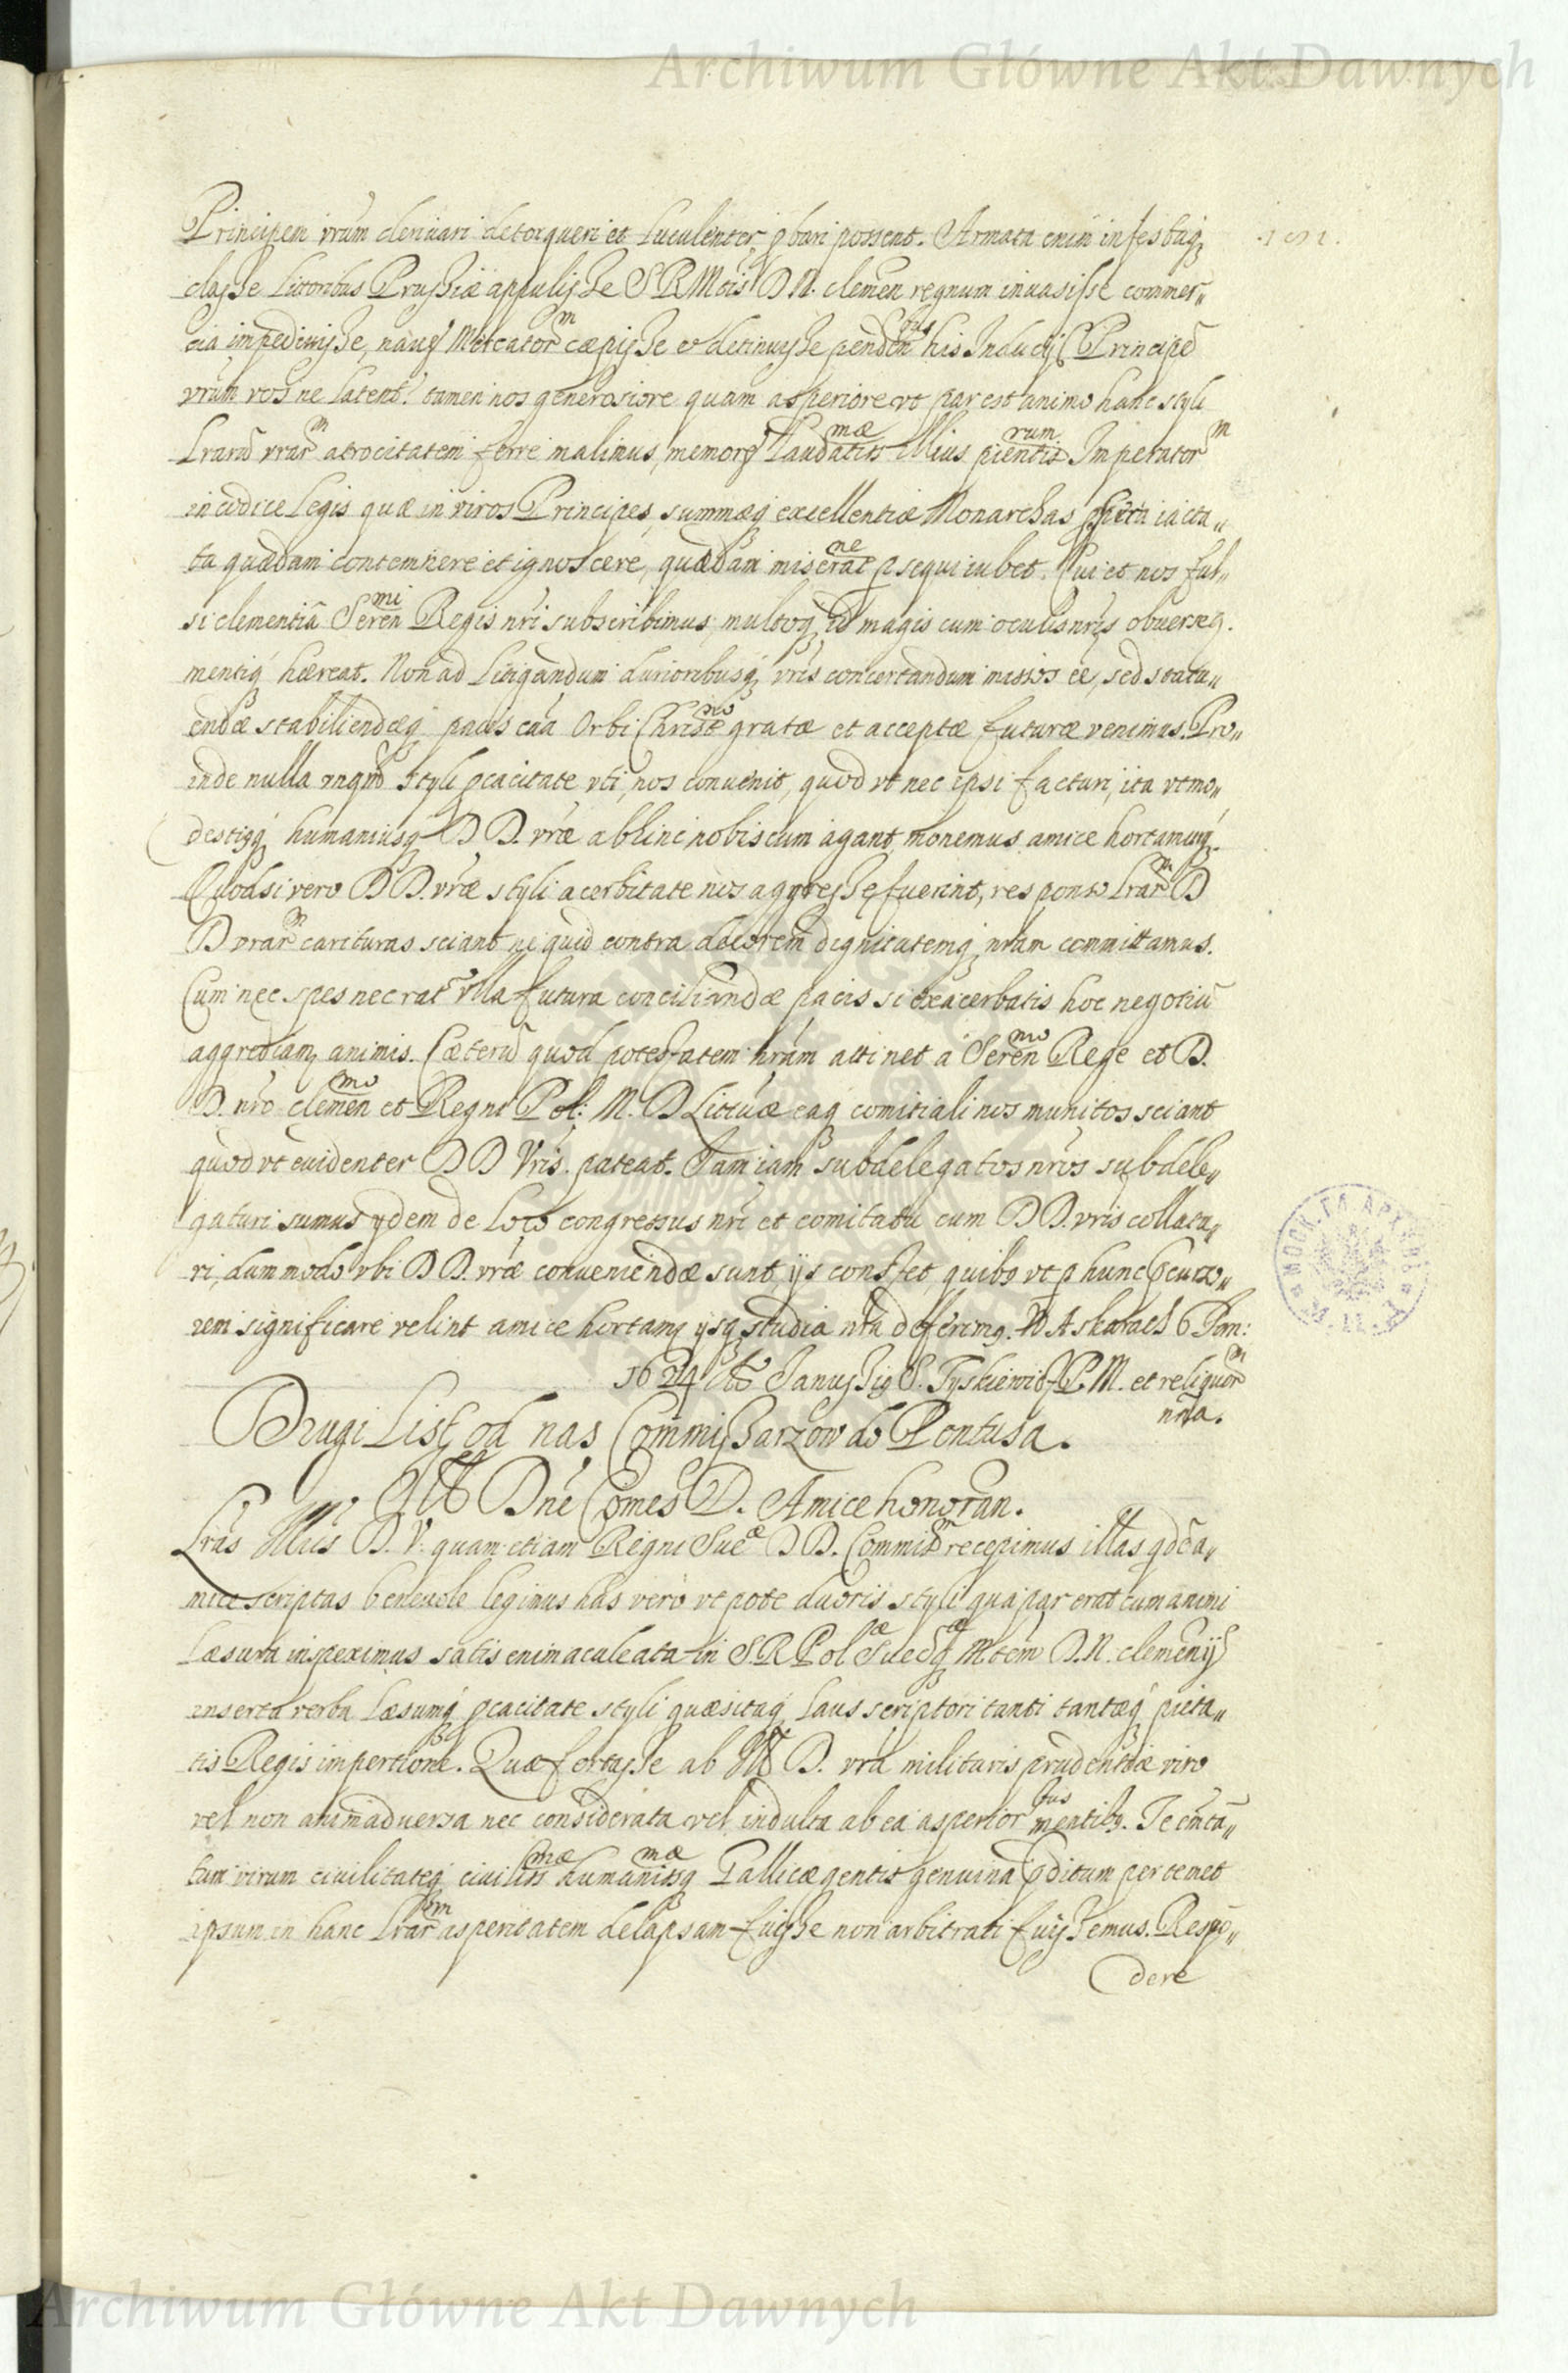 Archiwum Główne Akt Dawnych
Principem vrum deriuari detorqueri et luculenter pbari possent. Armata enim infestaq
classe littoribus Prussiæ appulisse S R Mtis D N. clemen regnum inuasisse commer„
cia impediuisse, naues Mercatorm cæpisse et detinuisse pendentibus his Inducijs Principē
vrum vos ne latent. tamen nos generosiore quam asperiore vt par est animo hanc styli
Lrarū vrarm atrocitatem ferre malimus, memores Laudatissmæ Illius pientissrum Imperatorm
in codice legis quæ in viros Principes, summæq excellentiæ Monarchas iacta„
ta quædam contemnere et ignoscere, quædam miseratne psequi iubet. Cui et nos ful„
si clementiâ Serenmi Regis nri subscribimus, multoq id magis cum oculis nris obuerset.
mentiq hæreat. Non ad litigandum durioribusq vris concertandum missos eē, sed statu„
endæ stabiliendæq pacis caa Orbi Christno gratæ et acceptæ futuræ venimus. Pro„
inde nulla styli pcacitate vti, nos conuenit, quod vt nec ipsi facturi, ita vt mo„
destiq humaniusq D D. vræ abhinc nobiscum agant, monemus amice hortamurq.
Quodsi vero D D. vræ styli acerbitate nos aggressæ fuerint, responso Lrarm D
D vrarm carituras sciant ne quid contra decorem dignitatemq nram committamus.
Cum nec spes nec rat vlla futura conciliandæ pacis si exacerbatis hoc negotiū
aggrediamq animis. Cæterū quod potestatem nram attinet a Serenmo Rege et D.
D. nro clemenmo et Regni Pol: M. D Littuæ eaq comitiali nos munitos sciant
quod vt euidenter D D Vris. pateat. Iam iam subdelegatos nros subdele„
gaturi sumus ydem de loco congressus nri et comitatu cum D D. vris collatu„
ri, dummodo vbi D D. vræ conueniendæ sunt, ijs constet, quibus vt p hunc cursō„
rem significare velint amice hortamq ijsq studia nra deferimq. W Askarach 6 Jan:
1624 Janussius S. Tyskiewicz P. M. et reliquorm
nna.
Drugi List od nas Commissarzow do Pontusa.
Illtr Dne Comes D. Amice honoran.
Lras Illris D. V. quam etiam Regni Sueæ D D. Commissm recepimus illas qdē a„
mice scriptas beneuole legimus has vero vt pote duoris styli qua par erat cum animi
læsura inspeximus satis enim aculeata in S. R Polæ Suedæq Mtem D. N. clemen ijs
inserta verba læsumq pcacitate styli quæsitaq laus scriptori tanti tantæq pieta„
tis Regis impertione. Quæ fortasse ab Ill D. vra militaris prudentiæ viro
vel non animaduersa nec considerata vel indulta ab ea asperiortus mentibq. Te
tum virum ciuilitateq ciuilissmæ humanissmæq Gallicæ gentis genuina pditum per temet
ipsum in hanc Lrarm asperitatem delapsam fuisse non arbitrati fuissemus. Respo„
dere
Archiwum Główne Akt Dawnych